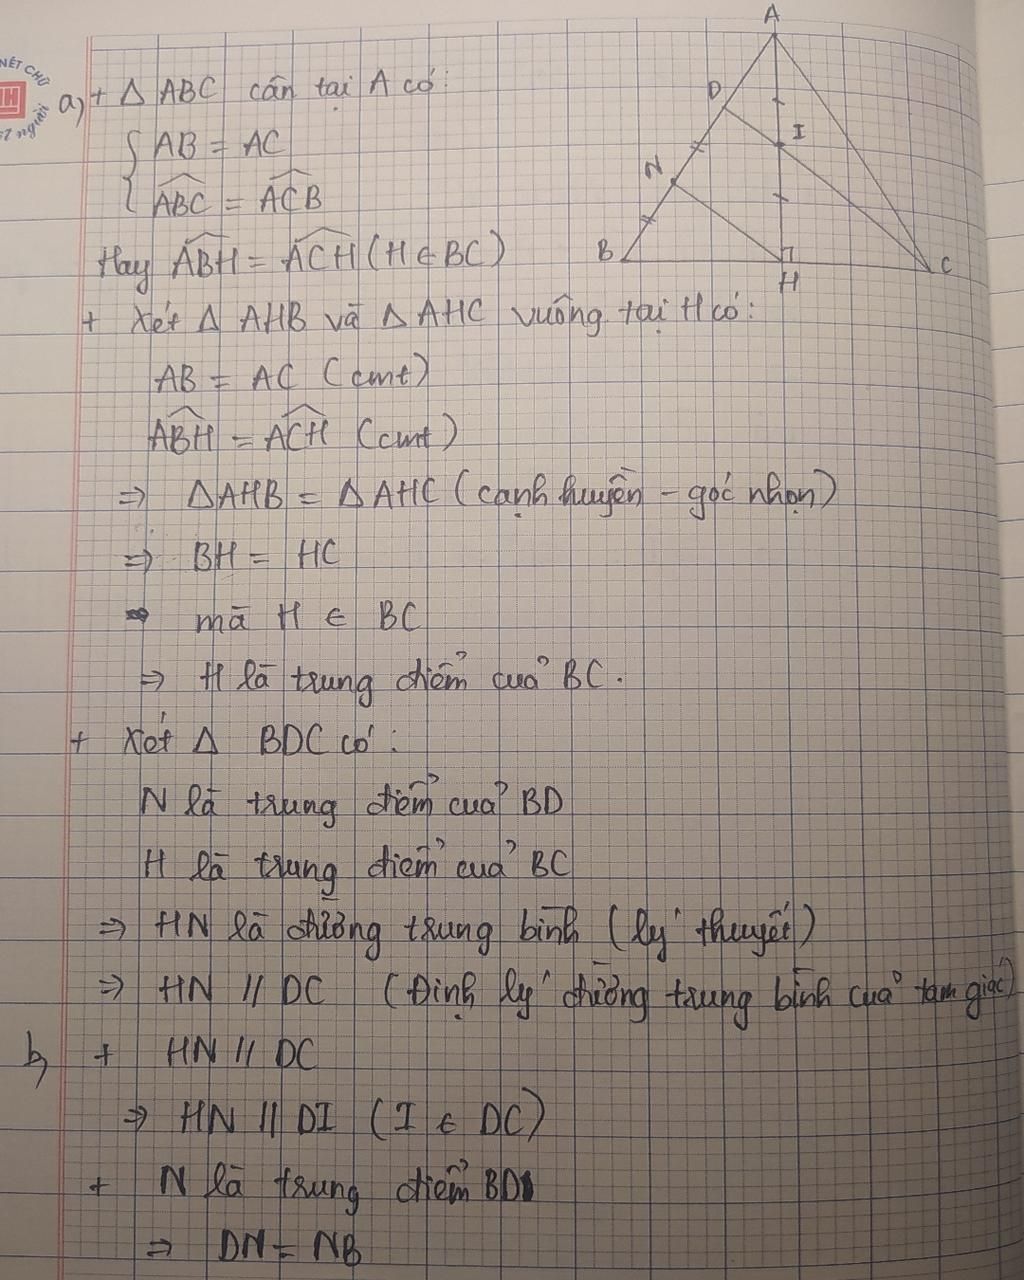 NÉT CHỮ
NH
nết người
A
D
I
N
B
H
C
a, + Δ ABC cân tại A có:
{ AB = AC
{ \widehat{ABC} = \widehat{ACB}
Hay \widehat{ABH} = \widehat{ACH} (H ∈ BC)
+ Xét Δ AHB và Δ AHC vuông tại H có:
AB = AC (cmt)
\widehat{ABH} = \widehat{ACH} (cmt)
⇒ ΔAHB = Δ AHC (cạnh huyền - góc nhọn)
⇒ BH = HC
mà H ∈ BC
⇒ H là trung điểm của BC.
+ Xét Δ BDC có:
N là trung điểm của BD
H là trung điểm của BC
⇒ HN là đường trung bình (lý thuyết)
⇒ HN // DC (Định lý đường trung bình của tam giác)
b, + HN // DC
⇒ HN // DI (I ∈ DC)
+ N là trung điểm BD
⇒ DN = NB